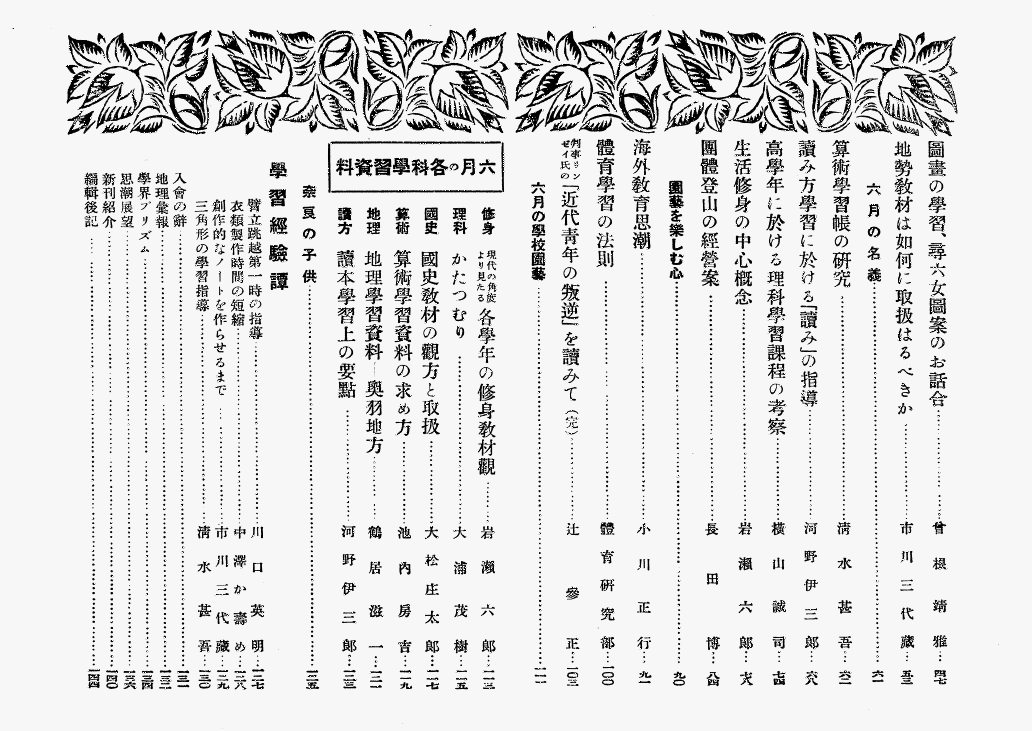 圖畫の學習、尋六女圖案のお話合 曾根靖雅 四七
地勢敎材は如何に取扱はるべきか 市川三代藏 五三
六月の名義 六一
算術學習帳の硏究 淸水甚吾 六二
讀み方學習に於ける「讀み」の指導 河野伊三郞 六八
高學年に於ける理科學習課程の考察 橫山誠司 七四
生活修身の中心槪念 岩瀨六郞 七八
團體登山の經營案 長田博 八四
園藝を樂しむ心 九〇
海外敎育思潮 小川正行 九一
體育學習の法則 體育硏究部 一〇〇
判事リンゼイ氏の「近代靑年の叛逆」を讀みて(完) 辻參正 一〇三
六月の學校園藝 一一一
六月の各科學習資料
修身 現代の角度より見たる各學年の修身敎材觀 岩瀨六郞 一一三
理科 かたつむり 大浦茂樹 一一五
國史 國史敎材の觀方と取扱 大松庄太郞 一一七
算術 算術學習資料の求め方 池內房吉 一一九
地理 地理學習資料—奧羽地方 鶴居滋一 一二一
讀方 讀本學習上の要點 河野伊三郞 一二三
奈良の子供 一二五
學習經驗譚
臂立跳越第一時の指導 川口英明 一二七
衣類製作時間の短縮 中澤か壽め 一二八
創作的なノートを作らせるまで 市川三代藏 一二九
三角形の學習指導 淸水甚吾 一三〇
入會の辭 一三一
地理彙報 一三二
學界プリズム 一三四
思潮展望 一三六
新刊紹介 一四〇
編輯後記 一四四